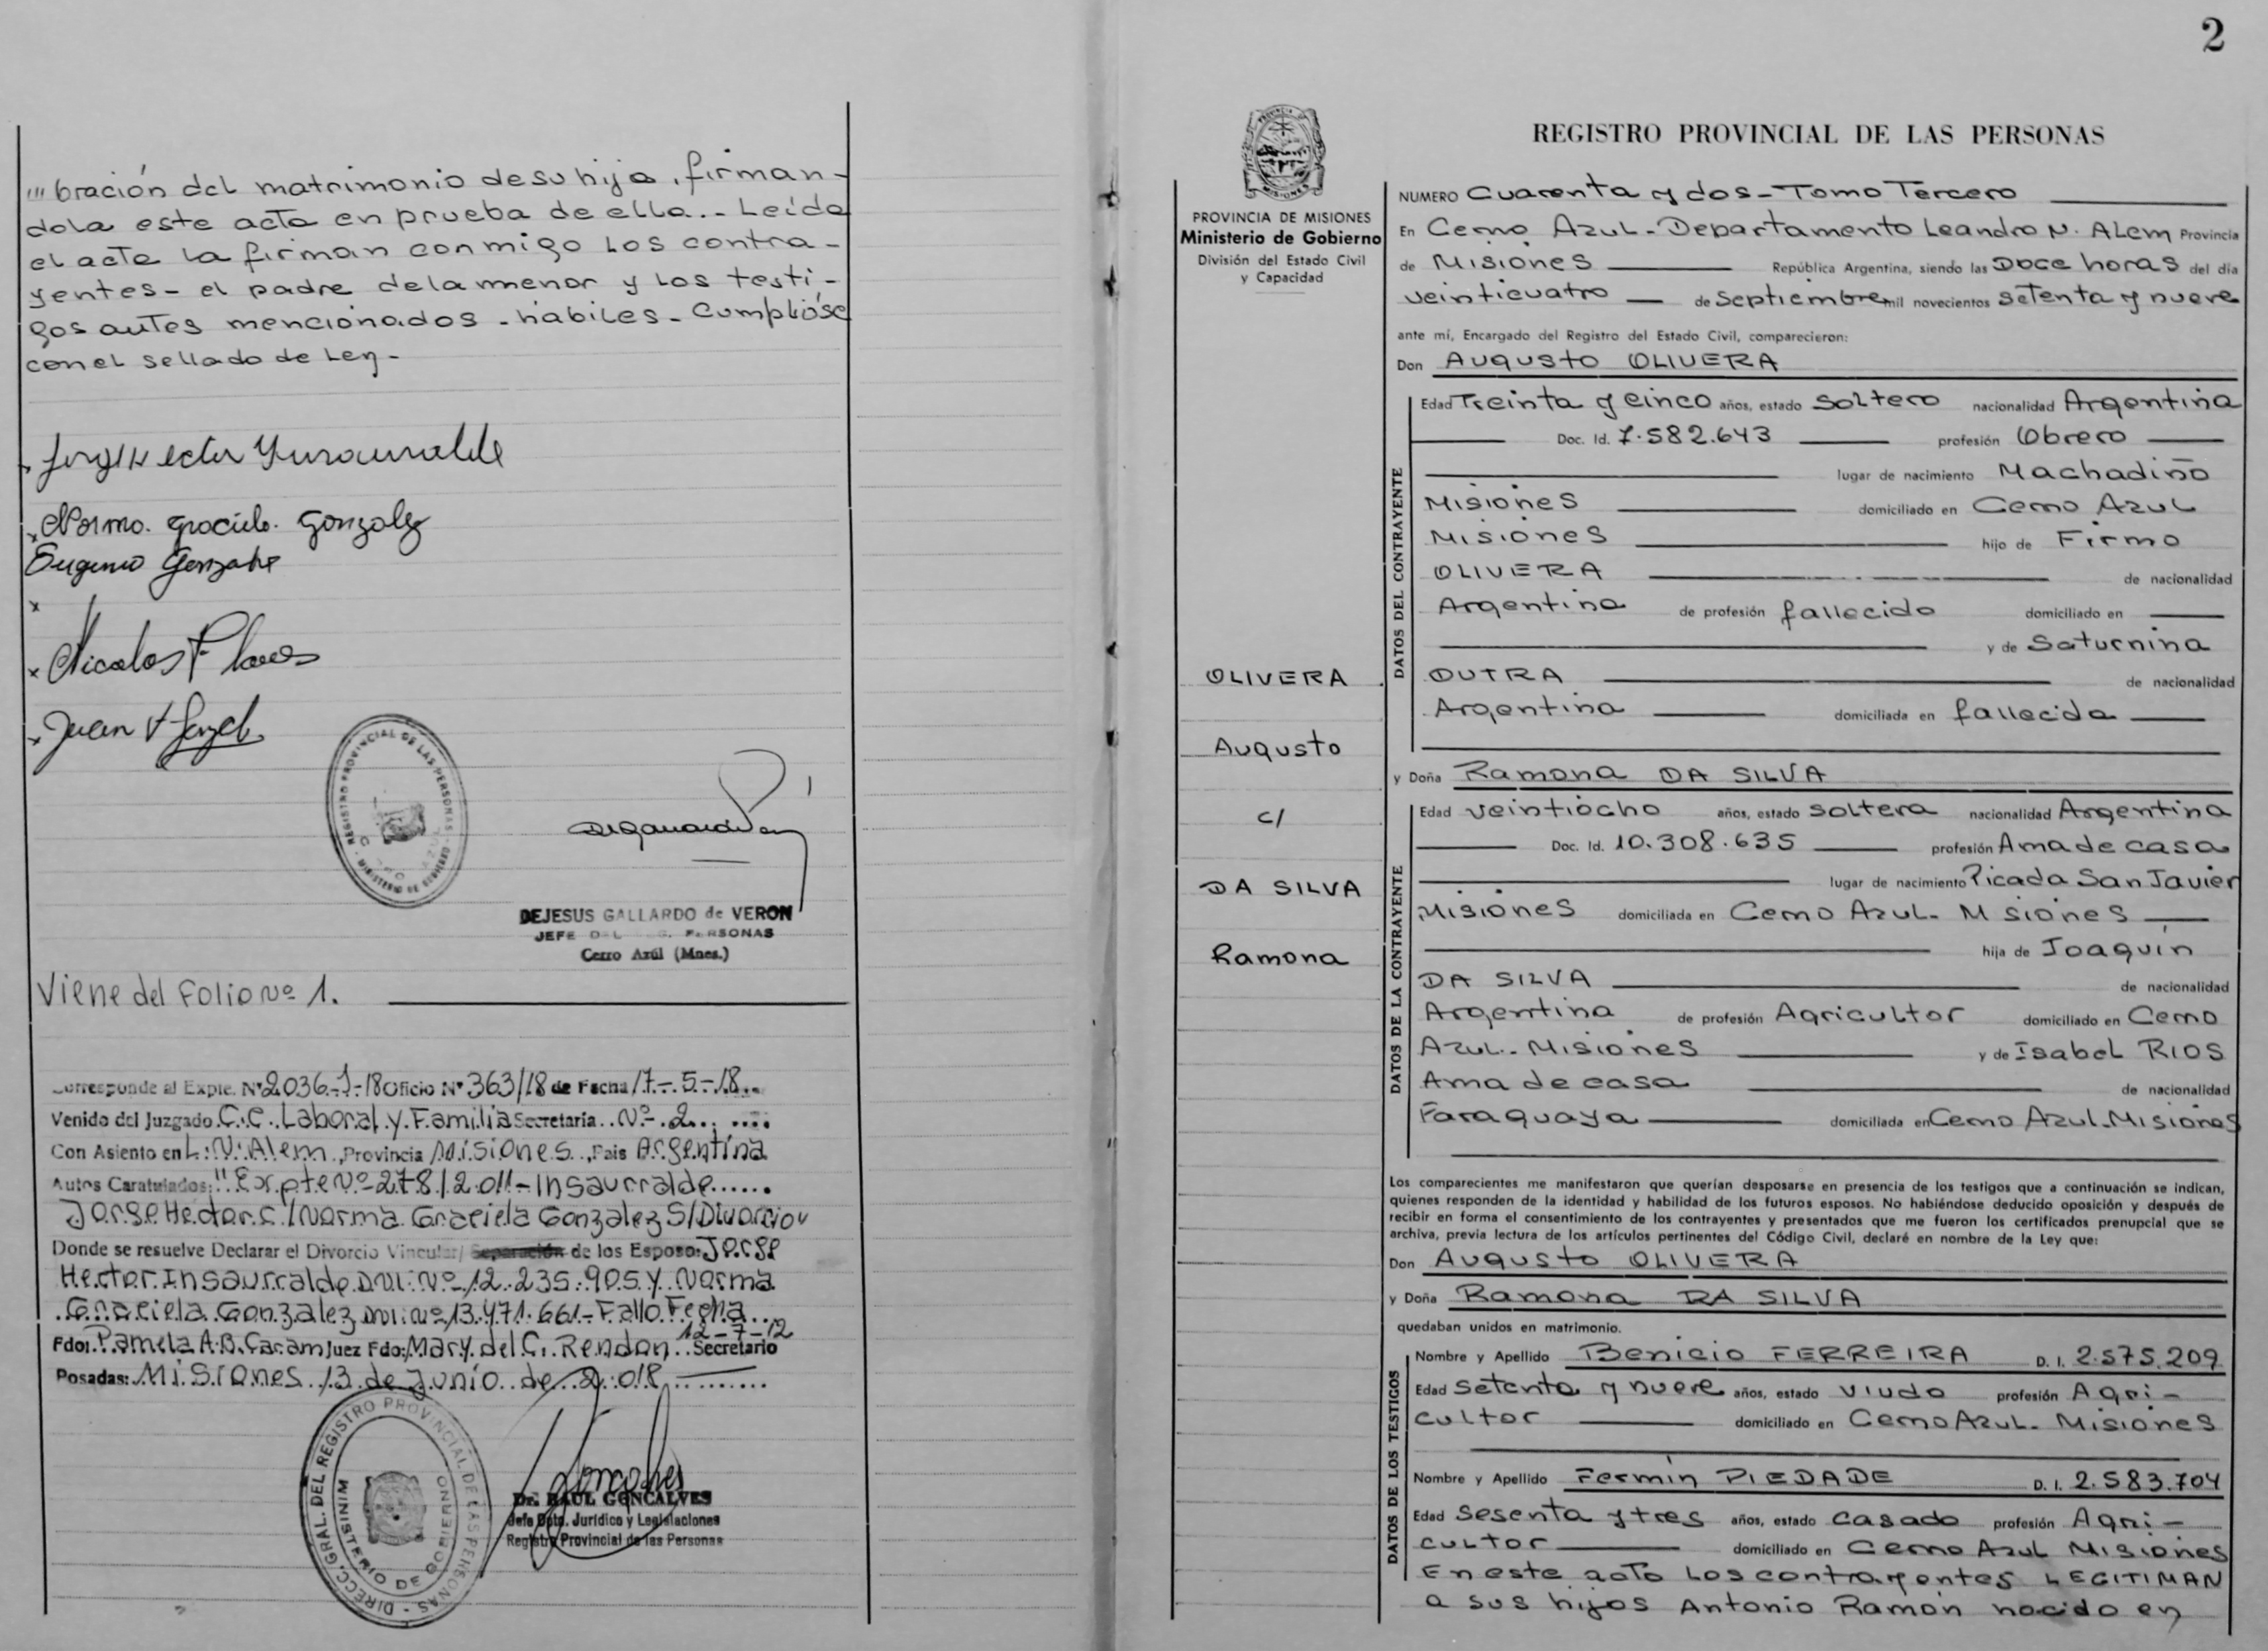 ''' bración del matrimonio de su hija, firman-
dola este acta en prueba de ello.- Leída
el acta la firman conmigo los contra-
yentes- el padre de la menor y los testi-
gos antes mencionados - hábiles - Cumplióse
con el sellado de Ley-
Norma Graciela Gonzalez
Eugenio Gonzalez
x
x Nicolas Flores
x Juan
REGISTRO PROVINCIAL DE LAS PERSONAS
MINISTERIO DE GOBIERNO
DEJESUS GALLARDO de VERON
JEFE PERSONAS
Cerro Azúl (Mnes.)
Viene del Folio Nº 1.
Corresponde al Expte. Nº 2036-1-18 Oficio Nº 363/18 de Fecha 17-5-18
Venido del Juzgado C.C. Laboral y Familia Secretaría Nº 2
Con Asiento en L.N. Alem, Provincia Misiones, Pais Argentina
Autos Caratulados: "Expte Nº 278/2011 - Insaurralde
Jorge Hector C/ Norma Graciela Gonzalez S/Divorcio"
Donde se resuelve Declarar el Divorcio Vincular/ Separación de los Esposo: Jorge
Hector Insaurralde DNI: Nº 12.235.905 y Norma
Graciela Gonzalez DNI: Nº 13.471.661 - Fallo Fecha
12-7-12
Fdo: Pamela A.B. Caram Juez Fdo: Mary del C. Rendon Secretario
Posadas: Misiones 13 de Junio de 2018
DIRECC. GRAL. DEL REGISTRO PROVINCIAL DE LAS PERSONAS
MINISTERIO DE GOBIERNO
Dr. RAUL GONCALVES
Jefe Dpto. Jurídico y Legislaciones
Registro Provincial de las Personas
2
PROVINCIA DE MISIONES
Ministerio de Gobierno
División del Estado Civil
y Capacidad
OLIVERA
Augusto
c/
DA SILVA
Ramona
REGISTRO PROVINCIAL DE LAS PERSONAS
NUMERO Cuarenta y dos - Tomo Tercero
En Cerro Azul - Departamento Leandro N. Alem Provincia
de Misiones República Argentina, siendo las Doce horas del día
veinticuatro de Septiembre mil novecientos setenta y nueve
ante mí, Encargado del Registro del Estado Civil, comparecieron:
Don Augusto OLIVERA
DATOS DEL CONTRAYENTE
Edad Treinta y cinco años, estado soltero nacionalidad Argentina
Doc. Id. 7.582.643 profesión Obrero
lugar de nacimiento Machadiño
Misiones domiciliado en Cerro Azul
Misiones hijo de Firmo
OLIVERA de nacionalidad
Argentina de profesión fallecido domiciliado en
y de Saturnina
DUTRA de nacionalidad
Argentina domiciliada en fallecida
y Doña Ramona DA SILVA
DATOS DE LA CONTRAYENTE
Edad veintiocho años, estado soltera nacionalidad Argentina
Doc. Id. 10.308.635 profesión Ama de casa
lugar de nacimiento Picada San Javier
Misiones domiciliada en Cerro Azul - Misiones
hija de Joaquín
DA SILVA de nacionalidad
Argentina de profesión Agricultor domiciliado en Cerro
Azul - Misiones y de Isabel RIOS
Ama de casa de nacionalidad
Paraguaya domiciliada en Cerro Azul - Misiones
Los comparecientes me manifestaron que querían desposarse en presencia de los testigos que a continuación se indican,
quienes responden de la identidad y habilidad de los futuros esposos. No habiéndose deducido oposición y después de
recibir en forma el consentimiento de los contrayentes y presentados que me fueron los certificados prenupcial que se
archiva, previa lectura de los artículos pertinentes del Código Civil, declaré en nombre de la Ley que:
Don Augusto OLIVERA
y Doña Ramona DA SILVA
quedaban unidos en matrimonio.
DATOS DE LOS TESTIGOS
Nombre y Apellido Benicio FERREIRA D. I. 2.575.209
Edad setenta y nueve años, estado viudo profesión Agri-
cultor domiciliado en Cerro Azul - Misiones
Nombre y Apellido Fermín PIEDADE D. I. 2.583.704
Edad sesenta y tres años, estado casado profesión Agri-
cultor domiciliado en Cerro Azul Misiones
En este acto los contrayentes LEGITIMAN
a sus hijos Antonio Ramón nacido en